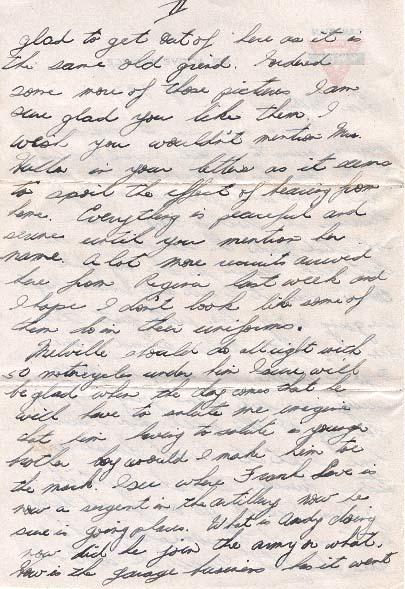 II
glad to get out of here as it is
the same old grind. I ordered
some more of those pictures I am
sure glad you like them. I
wish you wouldn't mention Mrs.
in your letters as it seems
to spoil the effect of hearing from
home. Everything is peaceful and
serene until you mention her
name. A lot more recruits arrived
here from Regina last week and
I hope I don't look like some of
them do in their uniforms.
Melville should do allright with
50 motorcycles under him I sure will
be glad when the day comes that he
will have to salute me imagine
him having to salute a younger
brother boy would I make him toe
the mark. I see where Frank Love is
now a sergent in the artillery now he
sure is going places. What is Andy doing
now did he join the army or what.
How is the garage business has it went